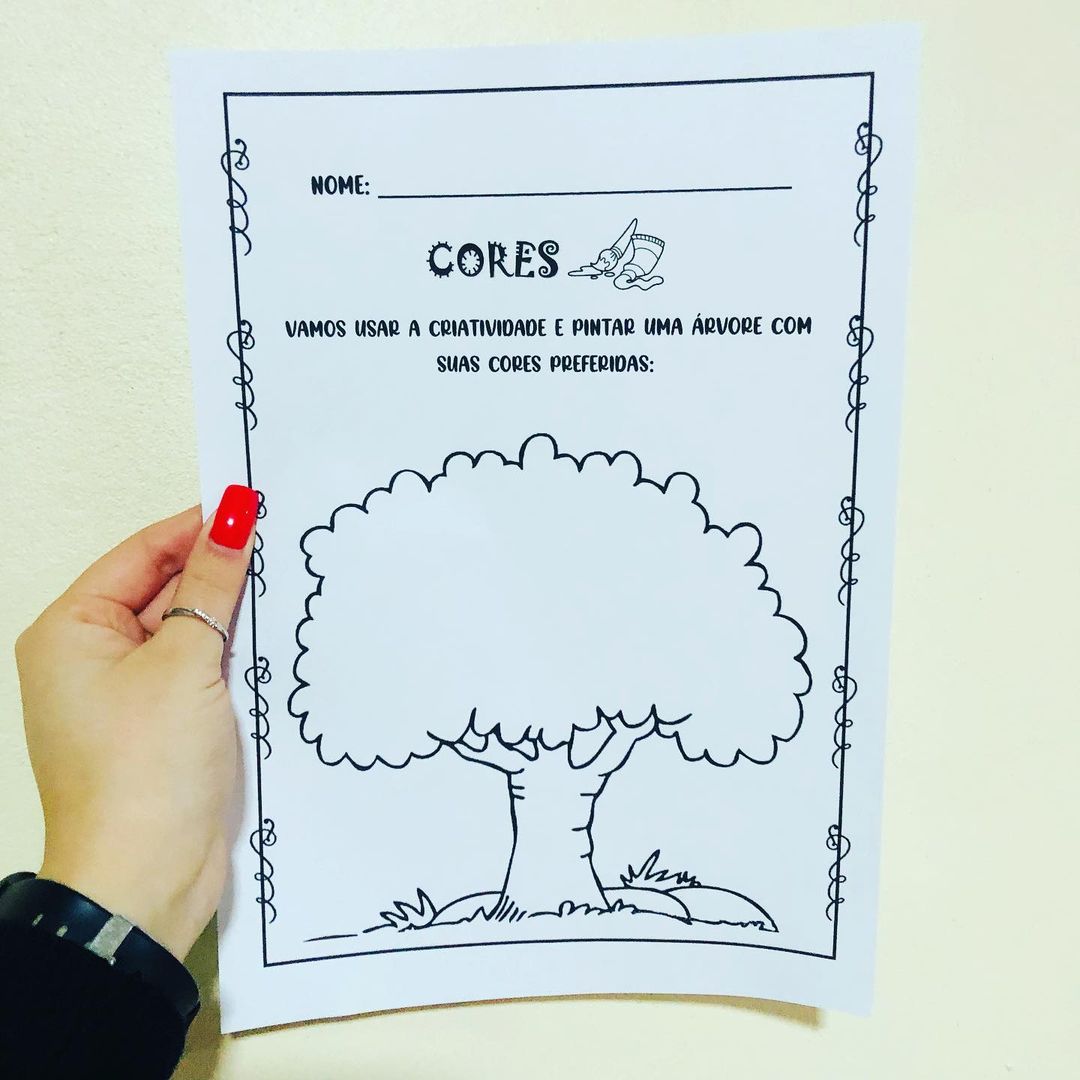 NOME:
CORES
VAMOS USAR A CRIATIVIDADE E PINTAR UMA ÁRVORE COM
SUAS CORES PREFERIDAS: